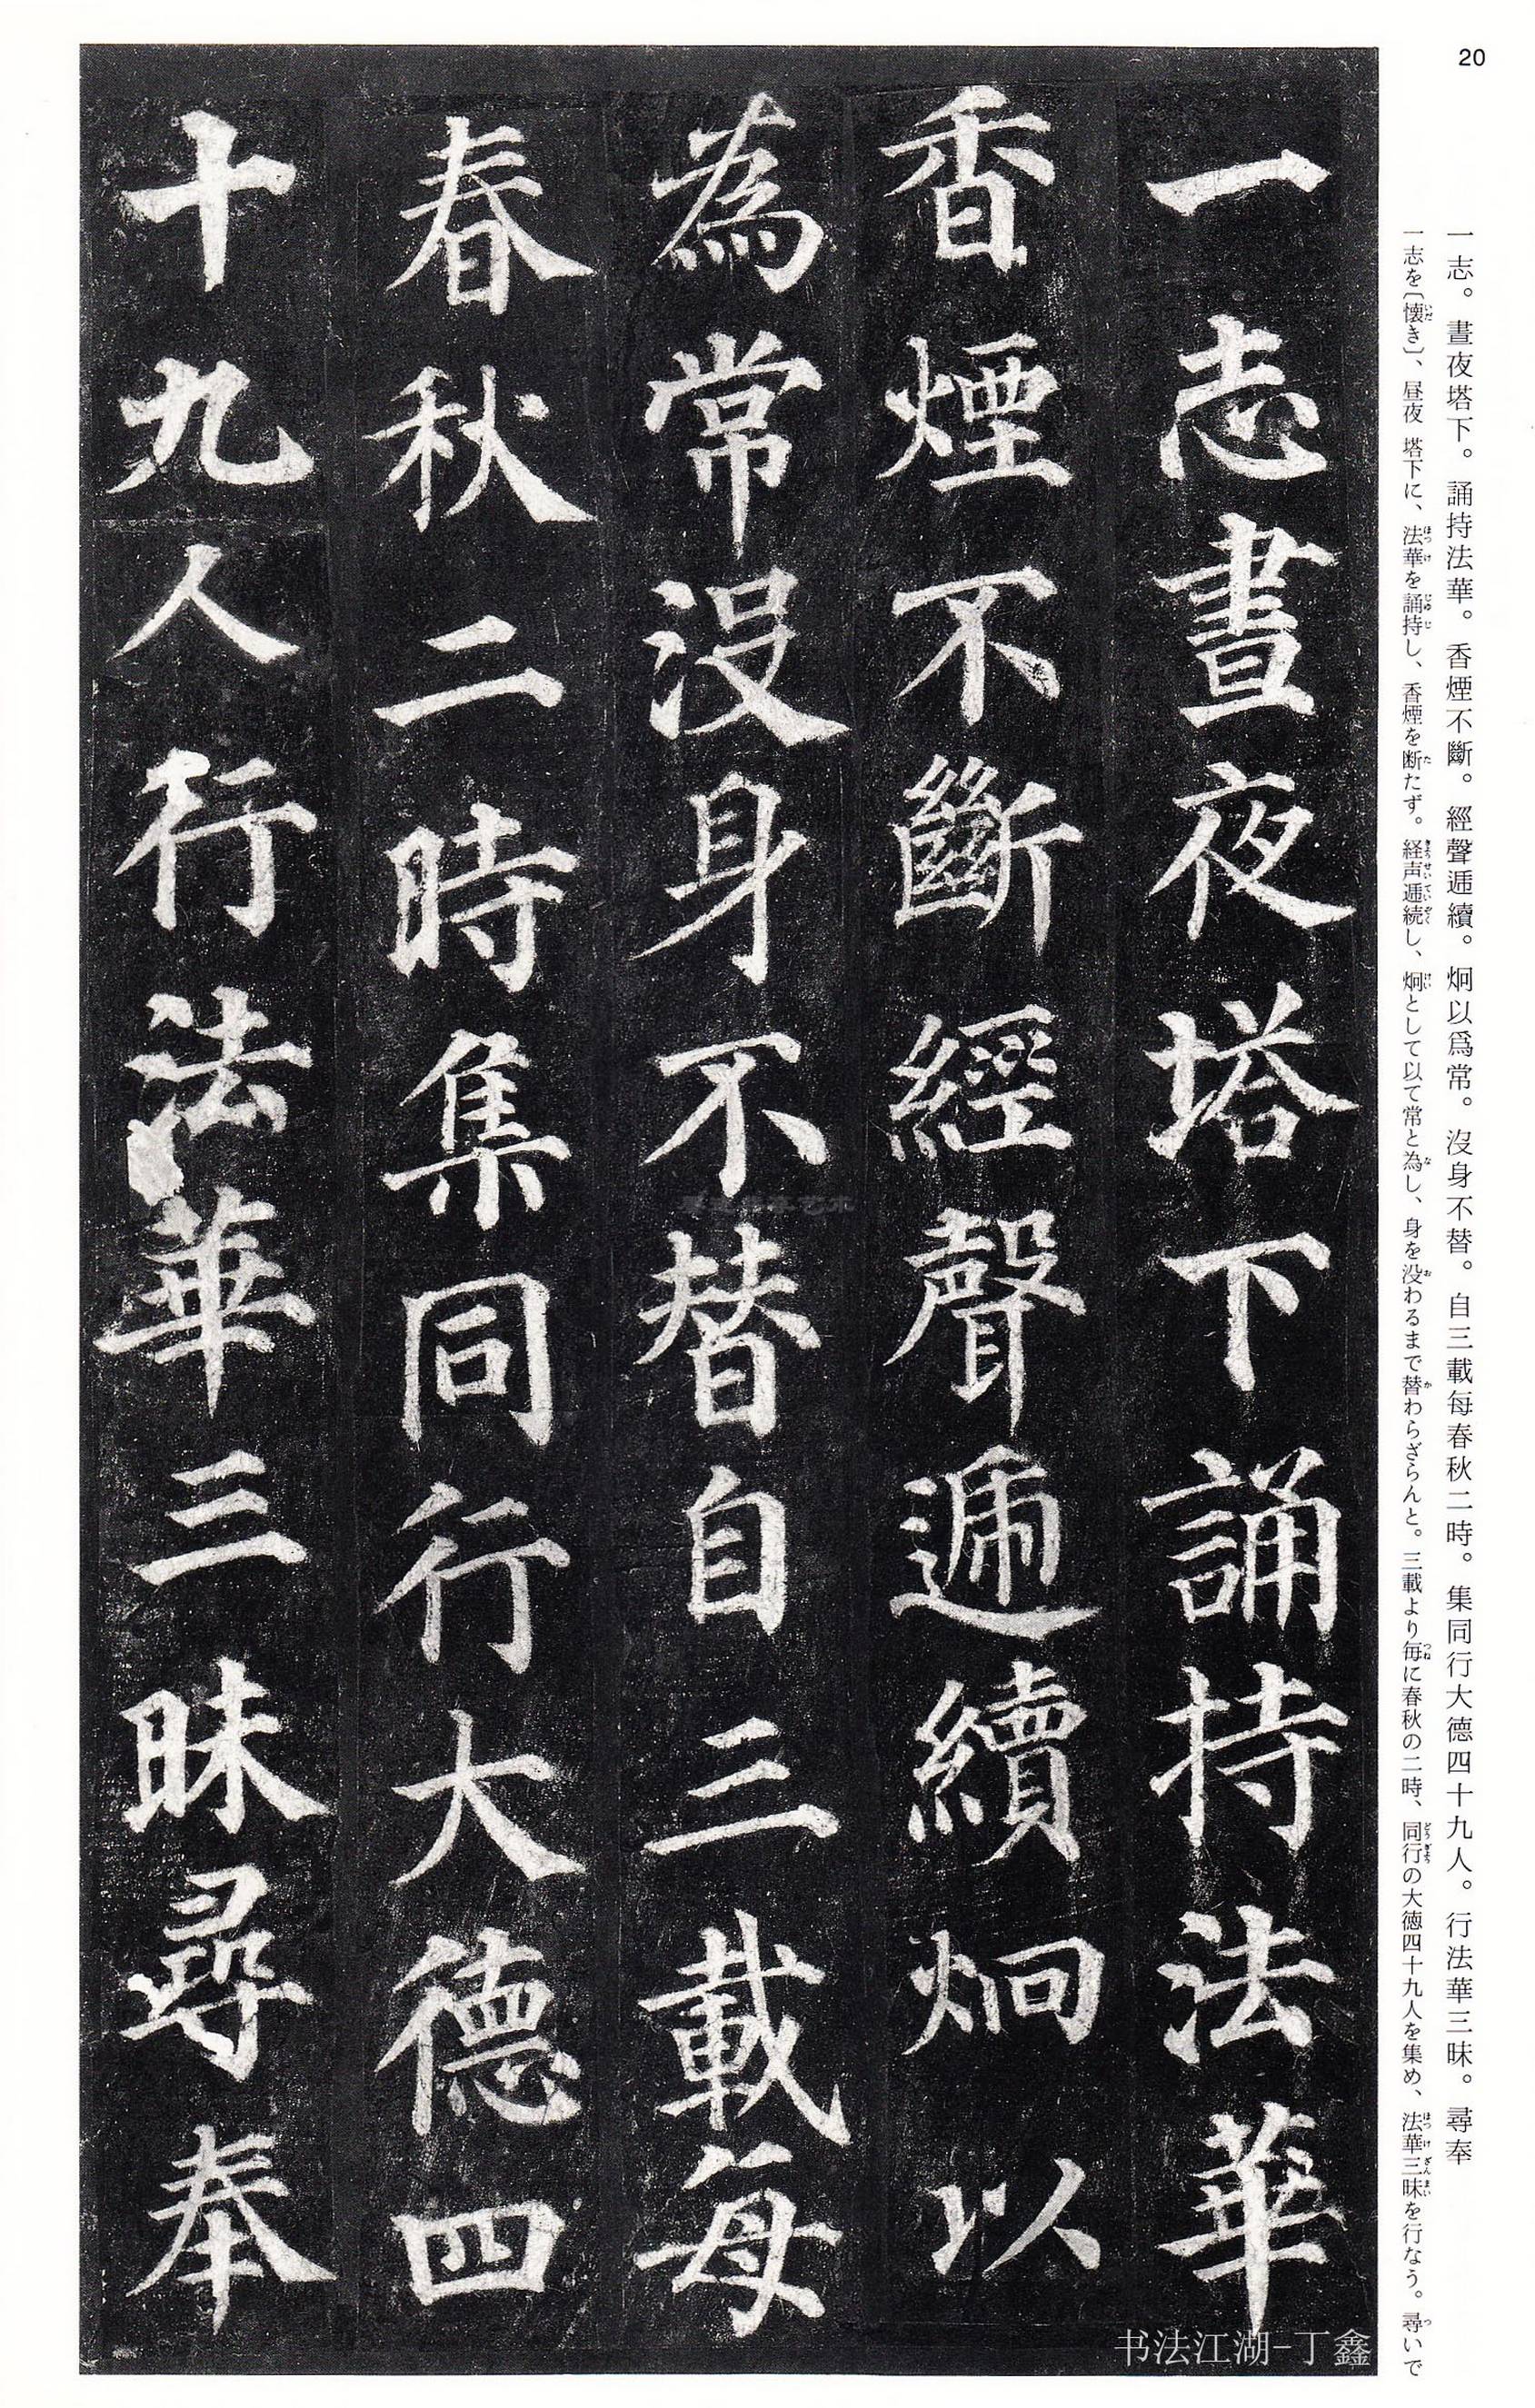 20
一志。晝夜塔下。誦持法華。香煙不斷。經聲遞續。炯以爲常。沒身不替。自三載每春秋二時。集同行大德四十九人。行法華三昧。尋奉
一志を〔懐き〕、昼夜 塔下に、法華を誦持し、香煙を断たず。経声逓続し、炯として以て常と為し、身を没わるまで替わらざらんと。三載より毎に春秋の二時、同行の大徳四十九人を集め、法華三昧を行なう。尋いで
一志晝夜塔下誦持法華
香煙不斷經聲遞續炯以
為常没身不替自三載每
春秋二時集同行大德四
十九人行法華三昧尋奉
书法江湖-丁鑫